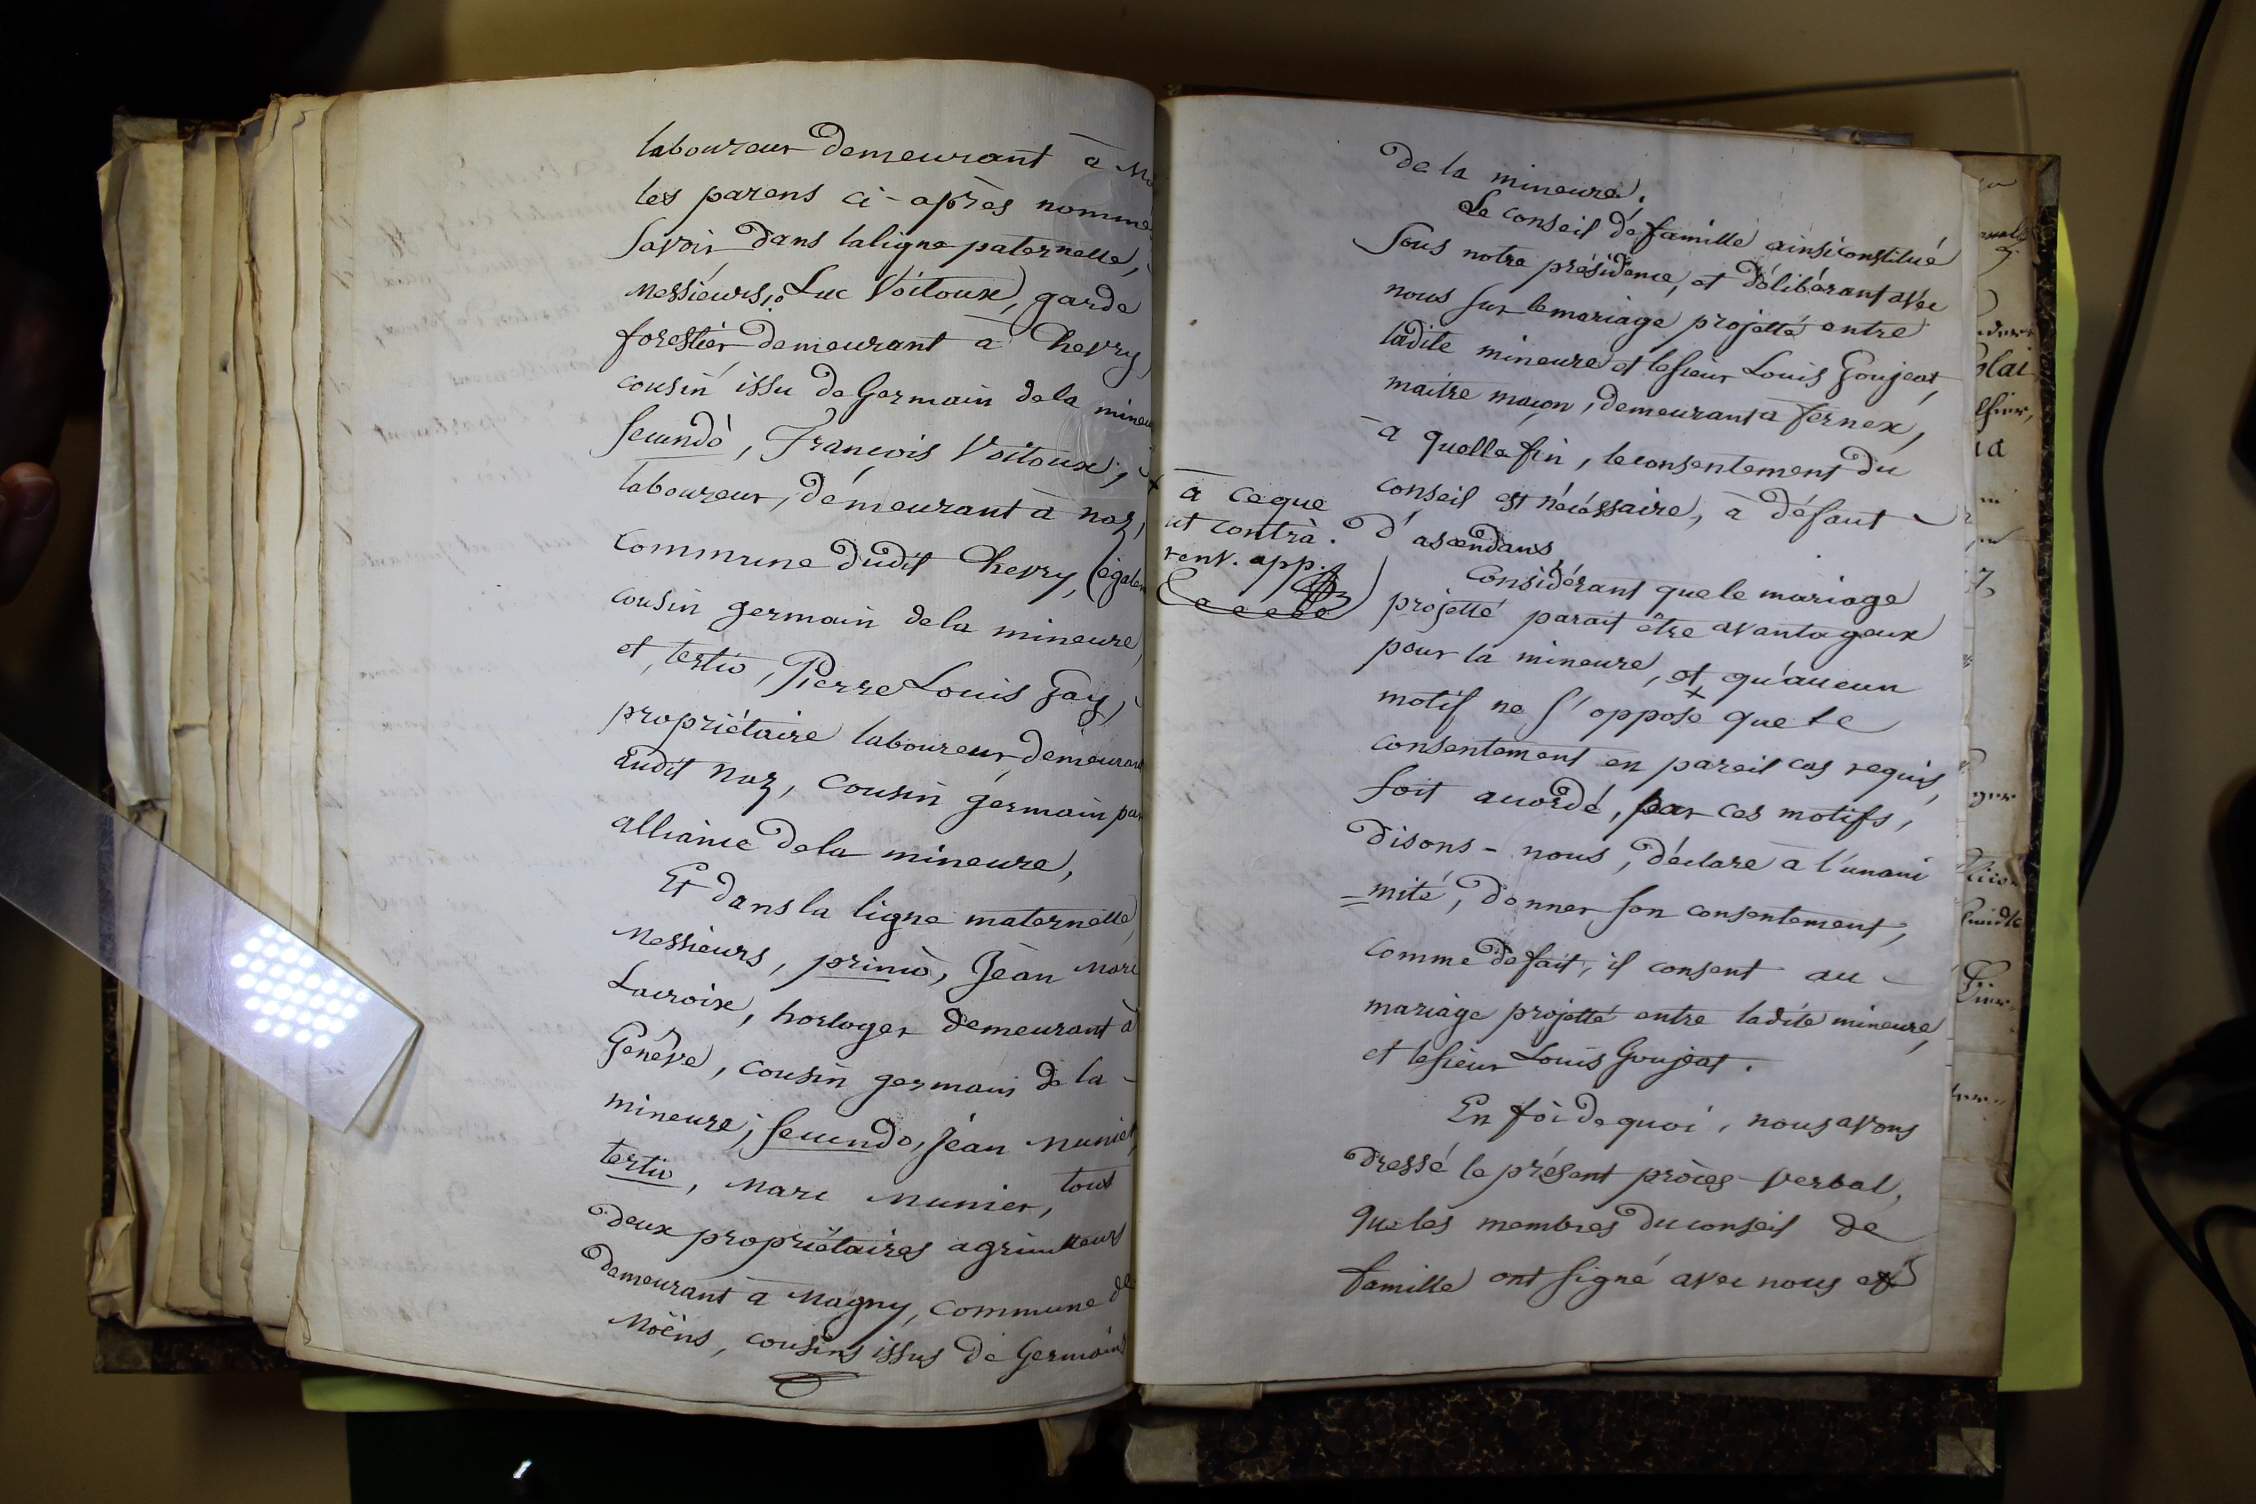 laboureur demeurant à
les parens ci-après nommé
Savoir dans la ligne paternelle,
Messieurs, 1.º Luc Voitoux, garde
forestier demeurant à Chevry,
cousin issu de Germain de la mineu
secundò, François Voitoux,
laboureur, démeurant à naz,
Commune dudit Chevry, (égalem
cousin germain de la mineure,
et tertio, Pierre Louis Gay,
propriétaire laboureur demeurant
audit Naz, Cousin germain par
alliance de la mineure,
Et dans la ligne maternelle,
Messieurs, primò, Jean Marc
Lacroix, horloger demeurant à
Genêve, cousin germain de la
mineure; secundo, Jéan Munier,
tertio, Marc Munier, tous
deux propriétaires agriculteurs
demeurant à Magny, Commune de
Moëns, cousins issus de Germains
de la mineure.
Le conseil de famille ainsi constitué
Sous notre présidence, et délibérant avec
nous sur le mariage projetté entre
ladite mineure et le sieur Louis Goujeat,
maitre maçon, demeurant à fernex,
à quelle fin, le consentement du
conseil est nécéssaire, à défaut
d'ascendans
Considérant que le mariage
projetté parait être avantageux
pour la mineure, et qu'aucun
motif ne s'oppose que le
consentement en pareil cas requis,
soit accordé, par ces motifs,
disons-nous, déclare à l'unani
=mité, donner son consentement,
comme de fait, il consent au
mariage projetté entre ladite mineure,
et le sieur Louis Goujeat.
En foi de quoi, nous avons
dressé le présent procès-verbal,
que les membres du conseil de
famille ont signé avec nous et
à ceque
et contrà.
renv. app.